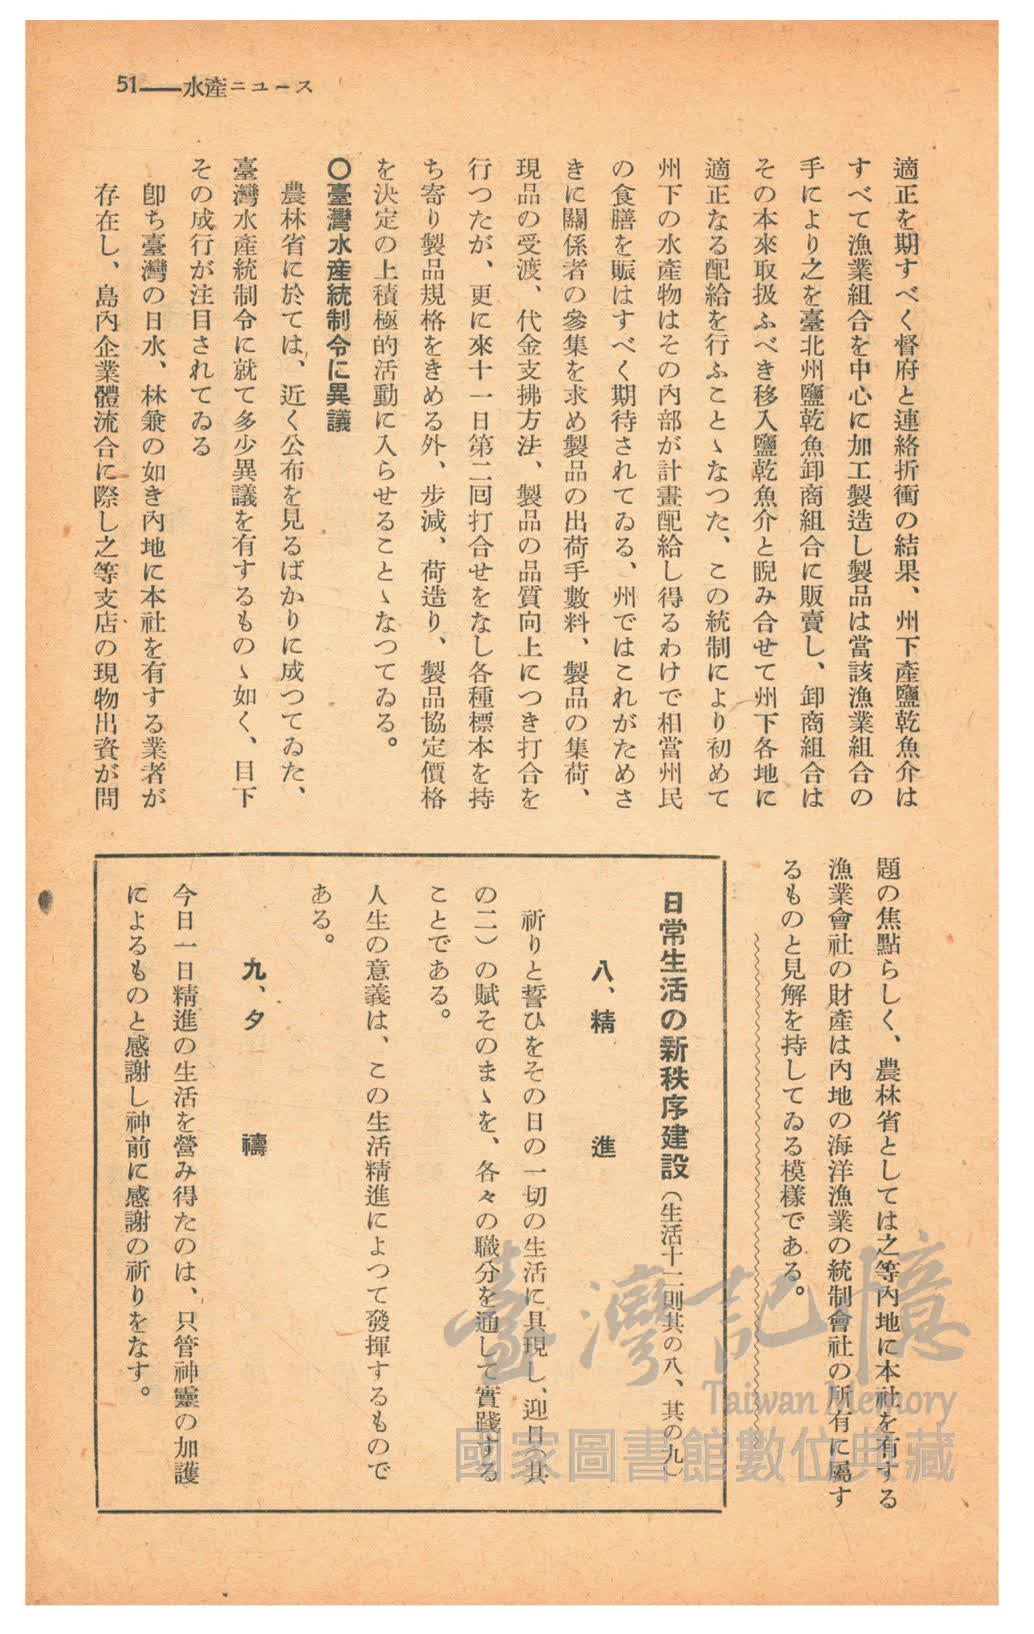 51――水產ニュース
適正を期すべく督府と連絡折衝の結果、州下產鹽乾魚介は
すべて漁業組合を中心に加工製造し製品は當該漁業組合の
手により之を臺北州鹽乾魚卸商組合に販賣し、卸商組合は
その本來取扱ふべき移入鹽乾魚介と睨み合せて州下各地に
適正なる配給を行ふことゝなつた、この統制により初めて
州下の水產物はその內部が計畫配給し得るわけで相當州民
の食膳を賑はすべく期待されてゐる、州ではこれがためさ
きに關係者の參集を求め製品の出荷手數料、製品の集荷、
現品の受渡、代金支拂方法、製品の品質向上につき打合を
行つたが、更に來十一日第二回打合せをなし各種標本を持
ち寄り製品規格をきめる外、步減、荷造り、製品協定價格
を決定の上積極的活動に入らせることゝなつてゐる。
〇臺灣水產統制令に異議
農林省に於ては、近く公布を見るばかりに成つてゐた、
臺灣水產統制令に就て多少異議を有するものゝ如く、目下
その成行が注目されてゐる
卽ち臺灣の日水、林兼の如き內地に本社を有する業者が
存在し、島內企業體流合に際し之等支店の現物出資が問
題の焦點らしく、農林省としては之等內地に本社を有する
漁業會社の財產は內地の海洋漁業の統制會社の所有に屬す
るものと見解を持してゐる模樣である。
日常生活の新秩序建設(生活十二則其の八、其の九)
八、精進
祈りと誓ひをその日の一切の生活に具現し、迎日(其
の二)の賦そのまゝを、各々の職分を通して實踐する
ことである。
人生の意義は、この生活精進によつて發揮するもので
ある。
九、夕禱
今日一日精進の生活を營み得たのは、只管神靈の加護
によるものと感謝し神前に感謝の祈りをなす。
臺灣記憶
Taiwan Memory
國家圖書館數位典藏